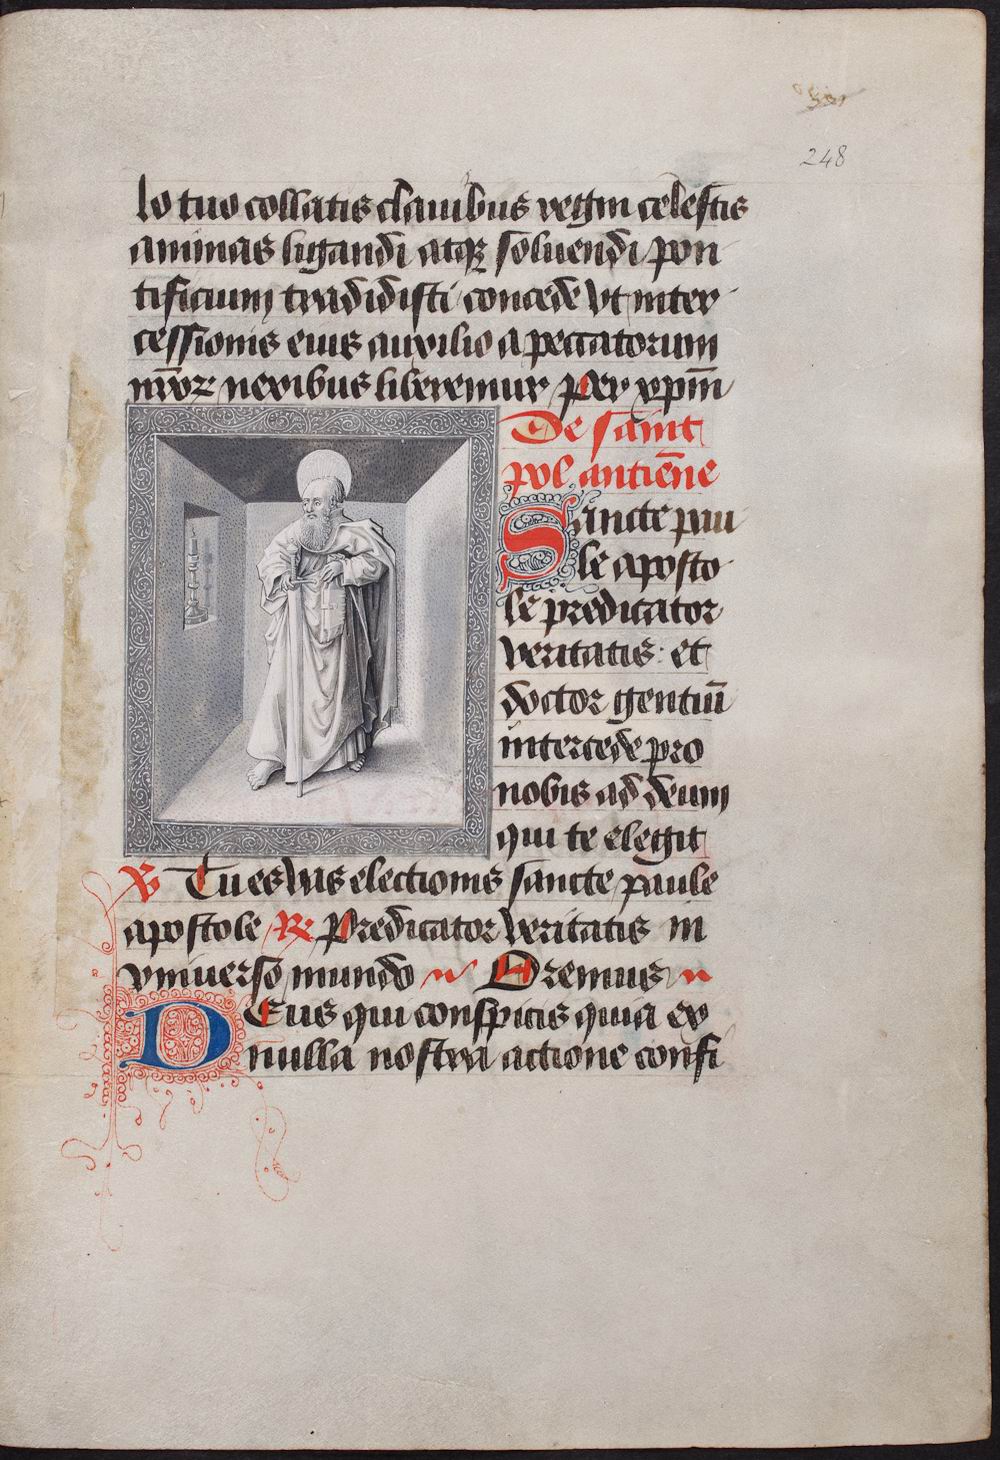 248
lo tuo collatis clauibus regni celestis
animas ligandi atqꝫ soluendi pon
tificium tradidisti concede vt inter
cessionis eius auxilio a peccatorum
nr̄oꝝ nexibus liberemur per xpm̄
De saint
pol antiēne
Sancte pau
le aposto
le predicator
veritatis: et
doctor gentiū
intercede pro
nobis ad deum
qui te elegit
℣ Tu es vas electionis sancte paule
apostole ℟ Predicator veritatis in
vniuerso mundo Oremus
Deus qui conspicis quia ex
nulla nostra actione confi